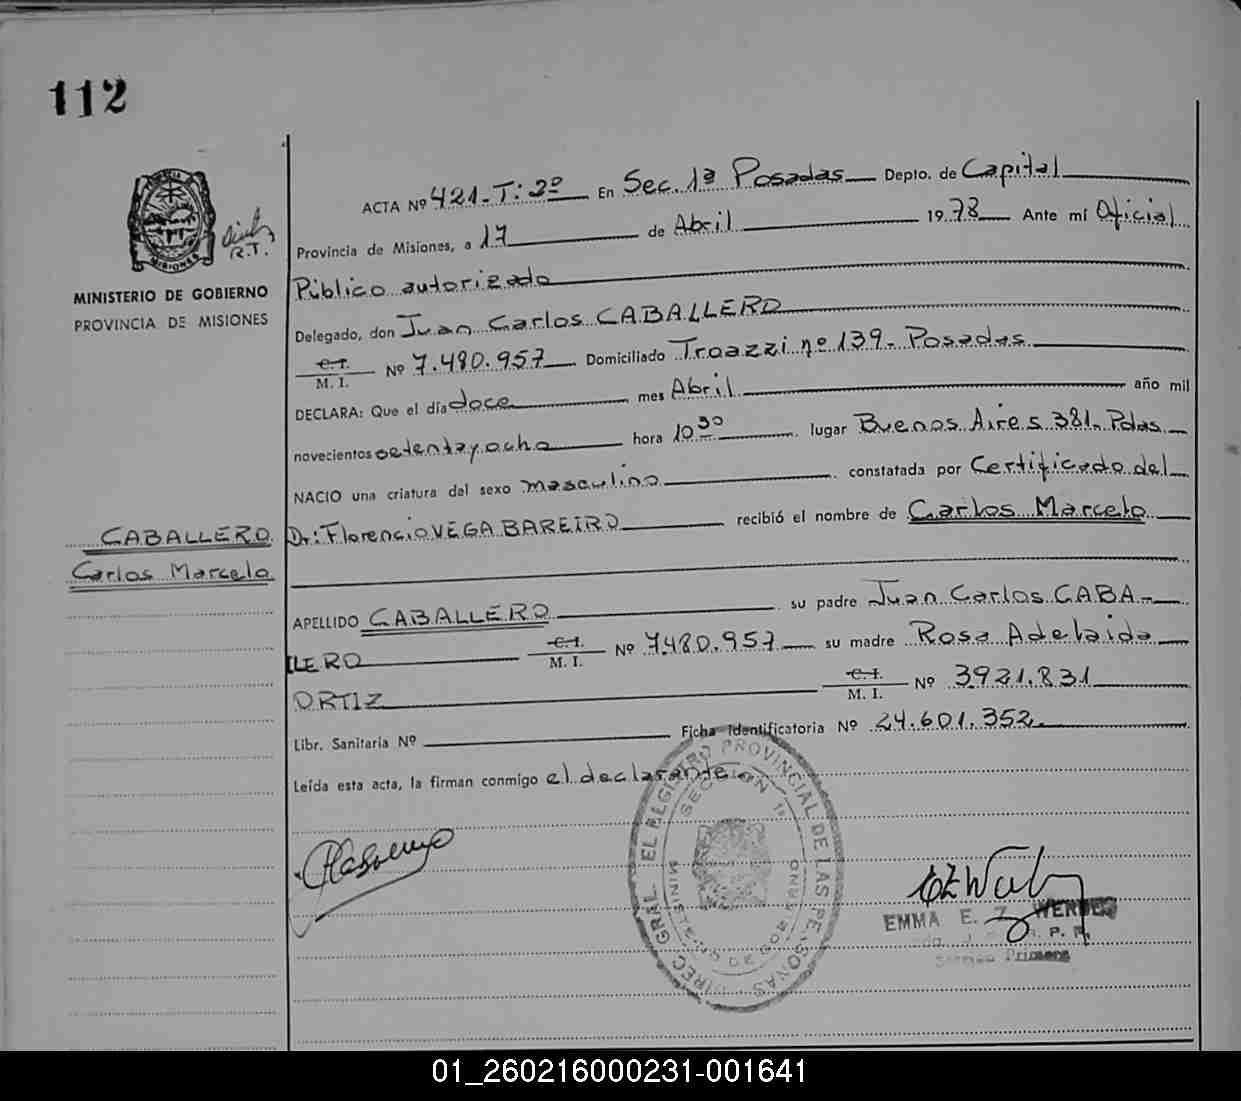 112
ACTA Nº 421-T: 2º En Sec. 1ª Posadas Depto. de Capital
Provincia de Misiones, a 17 de Abril 1978 Ante mí Oficial
R.T.
MINISTERIO DE GOBIERNO
PROVINCIA DE MISIONES
Público autorizado
Delegado, don Juan Carlos CABALLERO
C.I. M. I. Nº 7.480.957 Domiciliado Troazzi nº 139- Posadas
DECLARA: Que el día doce mes Abril año mil
novecientos setentayocho hora 10 30 lugar Buenos Aires 381- Pdas
NACIO una criatura del sexo masculino constatada por Certificado del
CABALLERO Dr: Florencio VEGA BAREIRO recibió el nombre de Carlos Marcelo
Carlos Marcelo
APELLIDO CABALLERO su padre Juan Carlos CABA-
LLERO C.I. M. I. Nº 7.480.957 su madre Rosa Adelaida
ORTIZ C.I. M. I. Nº 3921.831
Libr. Sanitaria Nº Ficha Identificatoria Nº 24.601.352
Leída esta acta, la firman conmigo el declarante
DIREC. GRAL. EL REGISTRO PROVINCIAL DE LAS PERSONAS
SECCION 1ª
MINISTERIO DE GOBIERNO
EMMA E. Z.
Primera
01_260216000231-001641